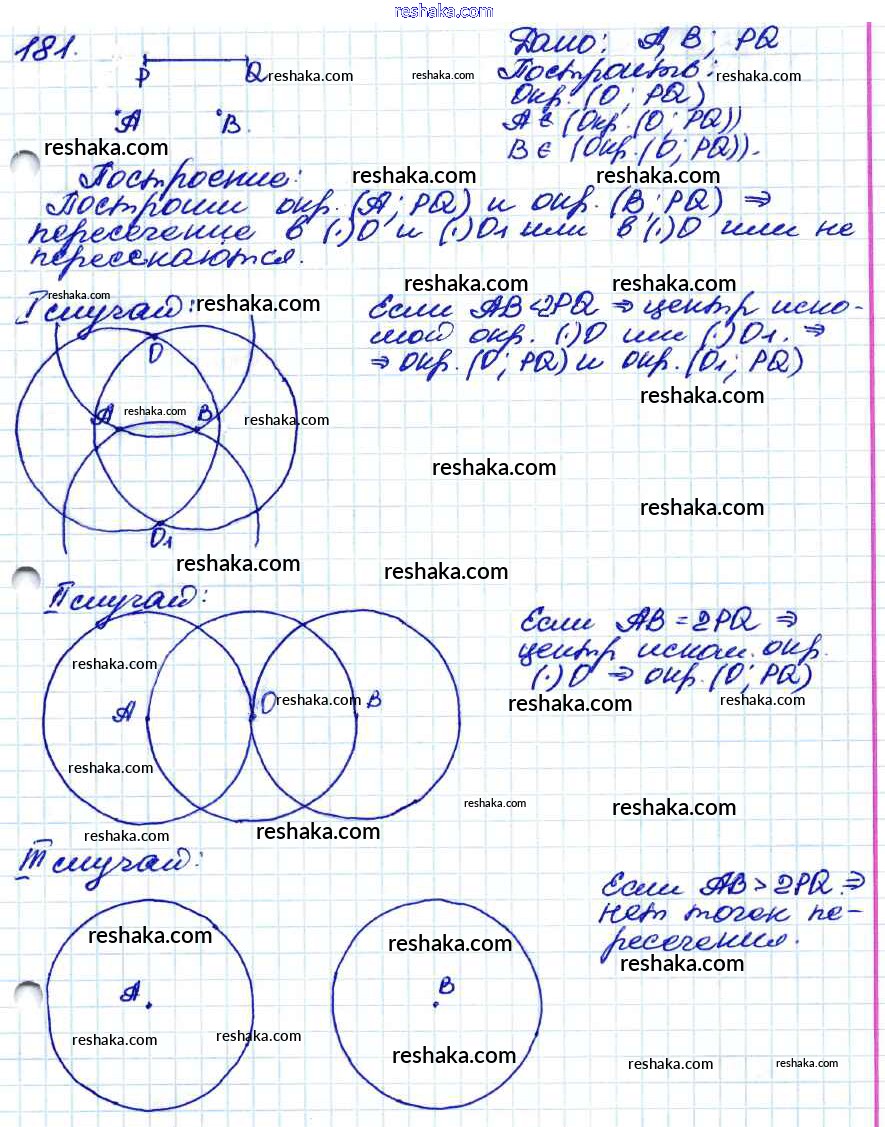 reshaka.com
181.
P Q reshaka.com
A B.
reshaka.com
Дано: A, B; PQ
reshaka.com
Построить: reshaka.com
Окр. (O; PQ)
A ∈ (Окр. (O; PQ))
B ∈ (Окр. (O; PQ)).
reshaka.com
Построение: reshaka.com reshaka.com
Построим окр. (A; PQ) и окр. (B; PQ) ⇒
пересечение в (·)O и (·)O1 или в (·)O или не
пересекаются.
reshaka.com reshaka.com
reshaka.com
I случай: reshaka.com
Если AB<2PQ ⇒ центр иско-
мой окр. (·)O или (·)O1. ⇒
⇒ окр. (O; PQ) и окр. (O1; PQ)
O
reshaka.com
A reshaka.com B
reshaka.com
reshaka.com
reshaka.com
O1
reshaka.com reshaka.com
II случай:
Если AB = 2PQ ⇒
центр иском. окр.
(·)O ⇒ окр. (O; PQ)
reshaka.com
A O reshaka.com B
reshaka.com reshaka.com
reshaka.com
reshaka.com reshaka.com
reshaka.com reshaka.com
III случай:
Если AB > 2PQ ⇒
нет точек пе-
ресечения.
reshaka.com reshaka.com
reshaka.com
A B
reshaka.com reshaka.com
reshaka.com
reshaka.com reshaka.com